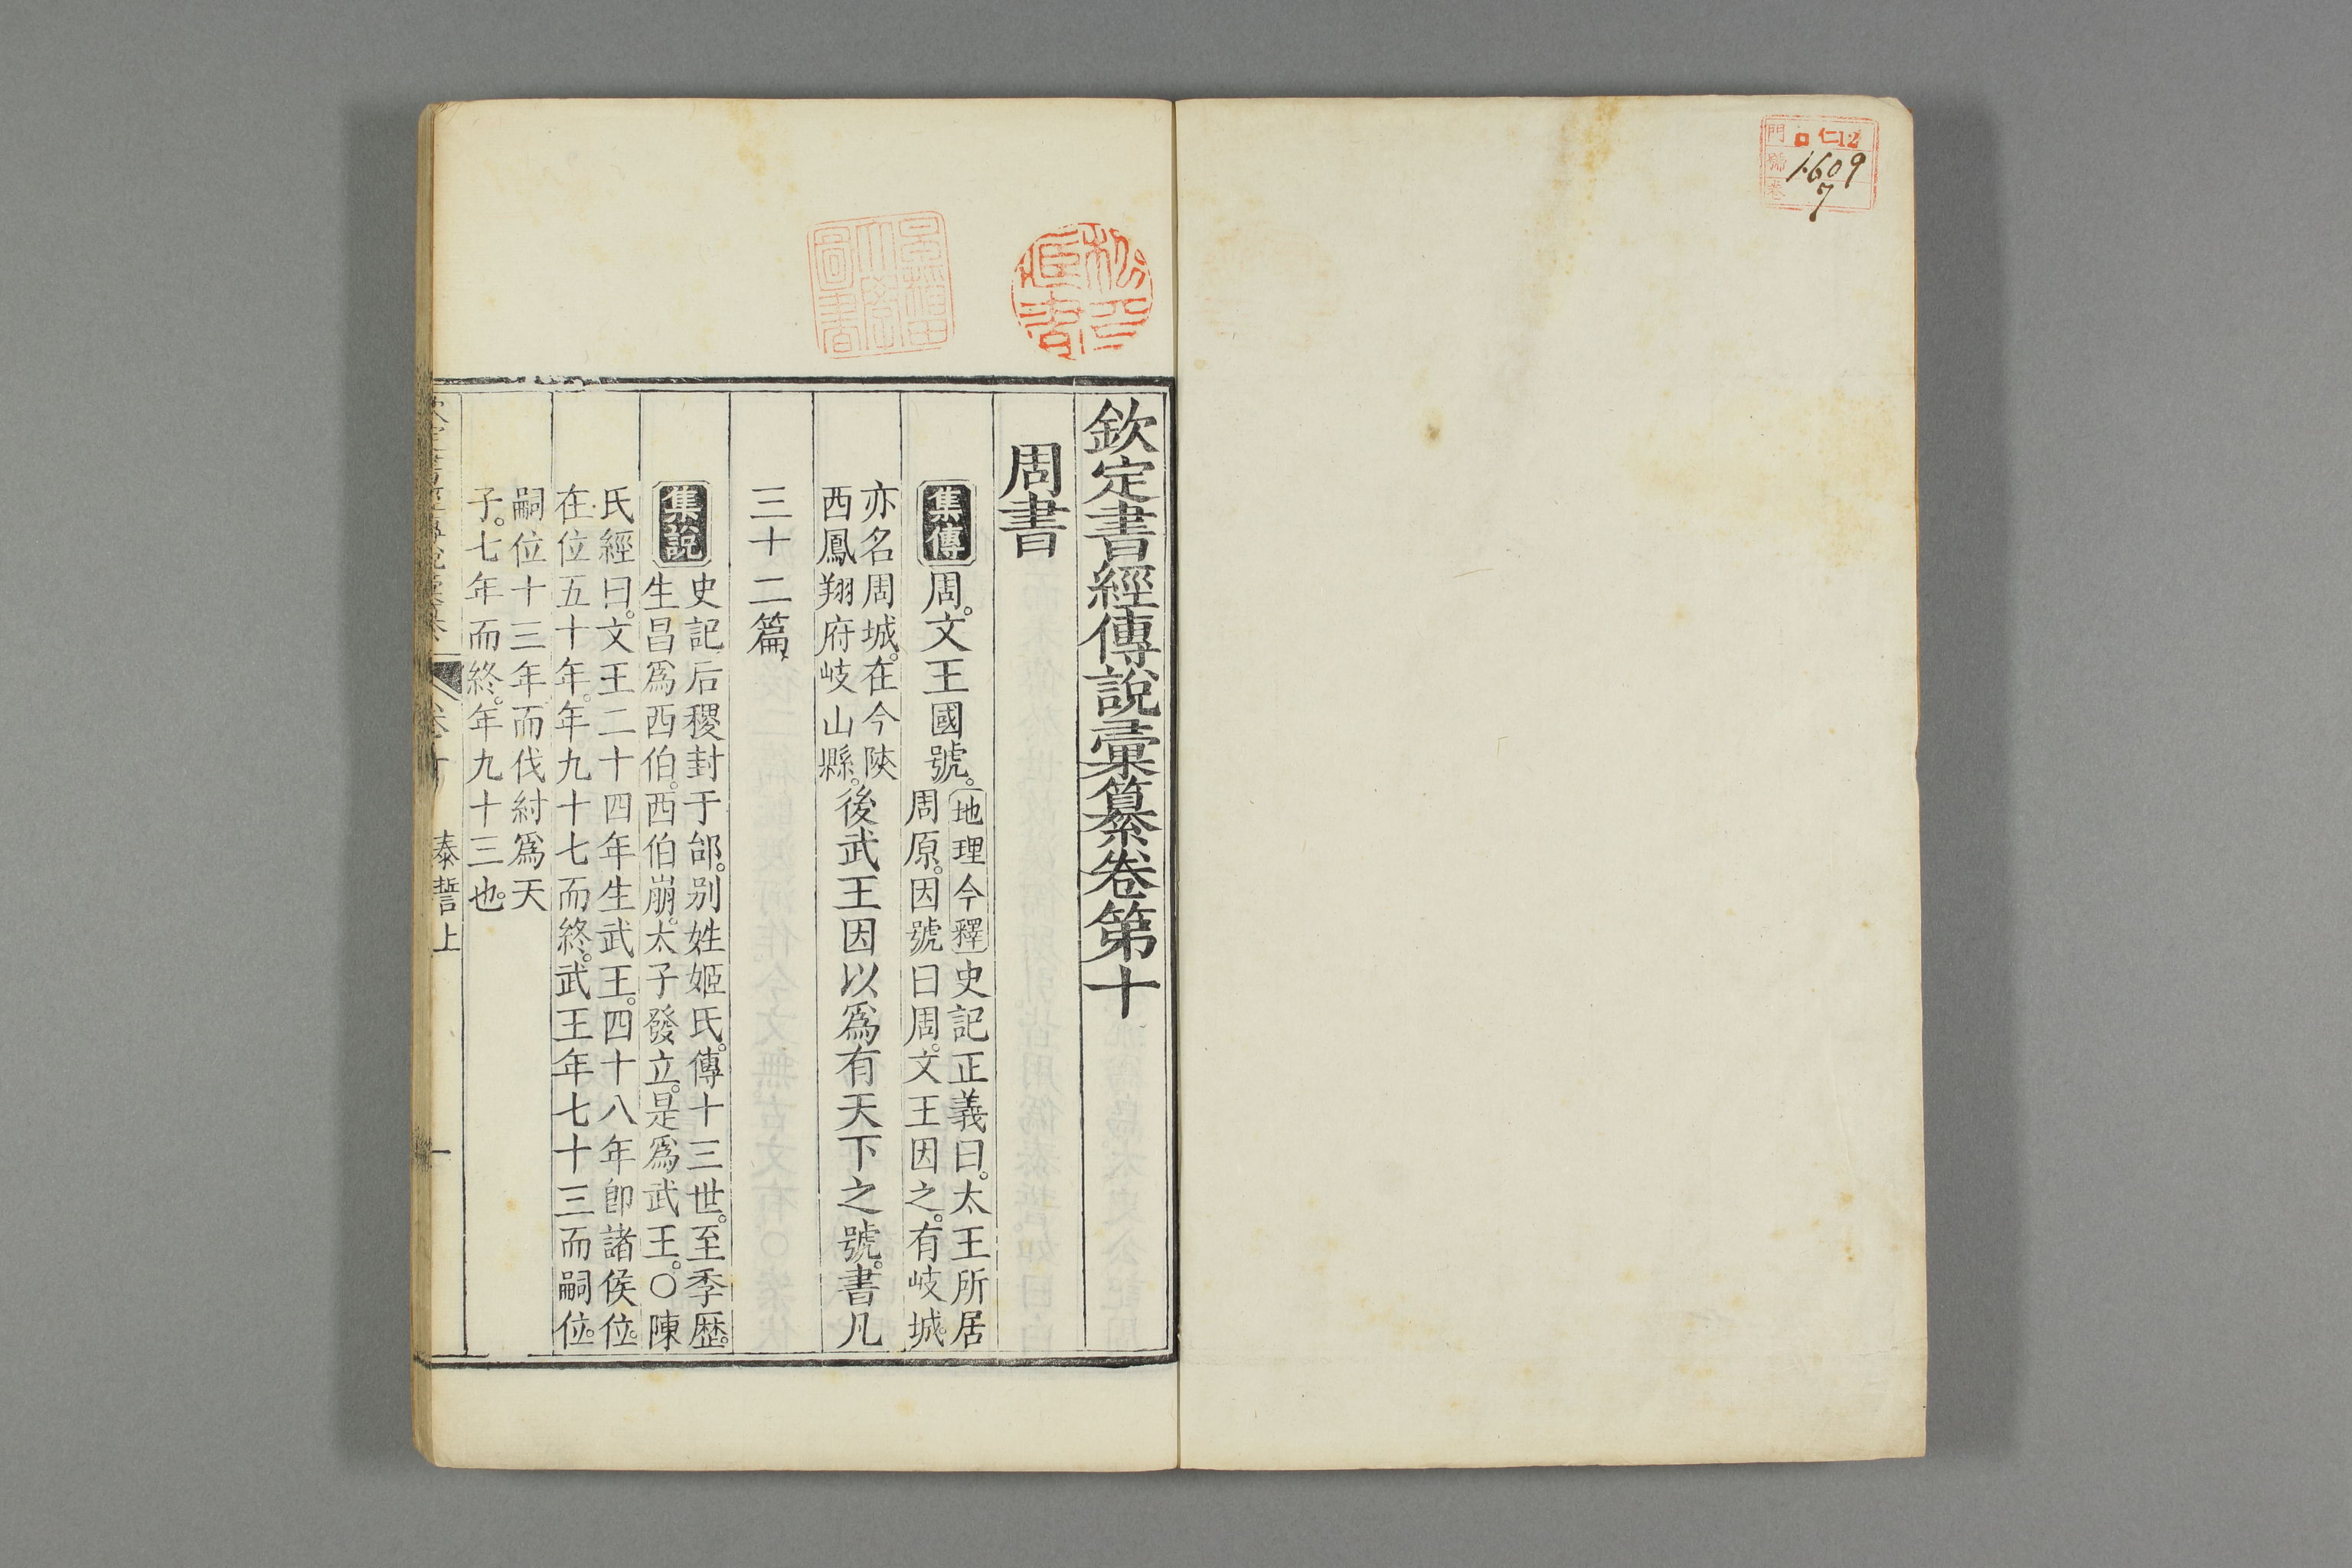 門 仁12
號 1609
卷 7
欽定書經傳說彙纂卷第十
周書
集傳 周。文王國號。
地理今釋 史記正義曰。太王所居
周原。因號曰周。文王因之。有岐城。
亦名周城。在今陝
西鳳翔府岐山縣。
後武王因以爲有天下之號。書凡
三十二篇、
集說
史記后稷封于邰。別姓姬氏。傳十三世。至季歷。
生昌爲西伯。西伯崩。太子發立。是爲武王。○陳
氏經曰。文王二十四年生武王。四十八年卽諸侯位。
在位五十年。年九十七而終。武王年七十三而嗣位。
嗣位十三年而伐紂爲天
子。七年而終。年九十三也。
卷十 泰誓上 一